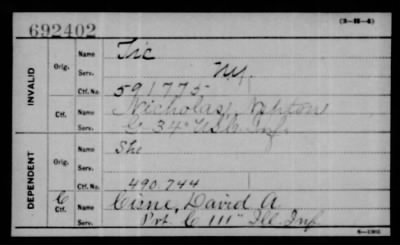 692402
(3-25-4)
INVALID
Orig.
Name Tic
Serv. Ny.
Ctf. No. 591775
Ctf. Name Nicholas,
Serv. G. 34" U.S.C. Inf.
DEPENDENT
Orig.
Name She
Serv.
Ctf. No. 490.744
C Ctf.
Name Cisne, David A
Serv. Pvt. C 111" Ill Inf